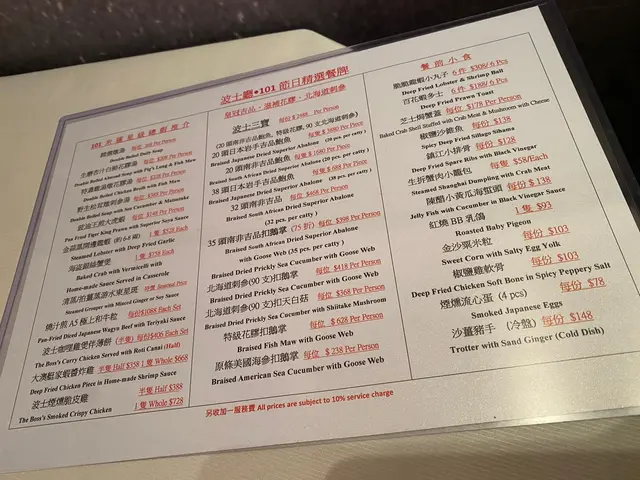 波士廳•101 節日精選餐牌
101 米蘭星級禮獻推介
Double Boiled Daily Soup
生磨杏汁白肺花膠湯 每位 $208 Per Person
Double Boiled Almond Soup with Pig's Lung & Fish Maw
Double Boiled Chicken Broth with Fish Maw
Double Boiled Soup with Sea Cucumber & Matsutake
豉油王煎大虎蝦 每位 $148 Per Person
Pan Fried Tiger King Prawn with Superior Soya Sauce
金蒜蒸開邊龍蝦 1隻 $528 Each
Steamed Lobster with Deep Fried Garlic
海盜銀絲蟹煲 1隻 $758 Each
Baked Crab with Vermicelli with
Home-made Sauce Served in Casserole
Steamed Grouper with Minced Ginger or Soy Sauce
燒汁煎 A5 極上和牛粒 每份$1088 Each Set
Pan-Fried Diced Japanese Wagyu Beef with Teriyaki Sauce
波士咖哩雞煲伴薄餅 (半隻) 每份$406 Each Set
The Boss's Curry Chicken Served with Roti Canai (Half)
大澳艇家蝦醬炸雞 半隻 Half $358 1隻 Whole $668
Deep Fried Chicken Piece in Home-made Shrimp Sauce
波士煙燻脆皮雞 半隻 Half $388
The Boss's Smoked Crispy Chicken 1隻 Whole $728
皇冠吉品、滋補花膠、北海道刺參
波士三寶 每位 $ 2468 Per Person
(20 頭南非吉品鮑魚, 特級花膠, 90 支北海道刺參)
20 頭日本岩手吉品鮑魚 每隻 $ 3880 Per Piece
Braised Japanese Dried Superior Abalone (20 pcs. per catty)
20 頭南非吉品鮑魚 每隻 $ 1680 Per Piece
Braised South African Dried Superior Abalone (20 pcs. per catty)
38 頭日本岩手吉品鮑魚 每隻 $ 688 Per Piece
Braised Japanese Dried Superior Abalone (38 pcs. per catty)
32 頭南非吉品鮑魚 每位 $468 Per Person
Braised South African Dried Superior Abalone
(32 pcs. per catty)
35 頭南非吉品鮑扣鵝掌 (75 折) 每位 $398 Per Person
Braised South African Dried Superior Abalone
with Goose Web (35 pcs. per catty)
Braised Dried Prickly Sea Cucumber with Goose Web
北海道刺參(90 支)扣鵝掌 每位 $418 Per Person
Braised Dried Prickly Sea Cucumber with Goose Web
北海道刺參(90 支)扣天白菇 每位 $368 Per Person
Braised Dried Prickly Sea Cucumber with Shiitake Mushroom
特級花膠扣鵝掌 每位 $ 628 Per Person
Braised Fish Maw with Goose Web
原條美國海參扣鵝掌 每位 $ 238 Per Person
Braised American Sea Cucumber with Goose Web
餐前小食
脆脆龍蝦小丸子 6 件 $308/ 6 Pcs
Deep Fried Lobster & Shrimp Ball
百花蝦多士 6 件 $188/ 6 Pcs
Deep Fried Prawn Toast
芝士焗蟹蓋 每位 $178 Per Person
Baked Crab Shell Stuffed with Crab Meat & Mushroom with Cheese
椒鹽沙鑽魚 每份 $138
Spicy Deep Fried Sillago Sihama
鎮江小排骨 每份 $128
Deep Fried Spare Ribs with Black Vinegar
生拆蟹肉小籠包 每隻 $58/Each
Steamed Shanghai Dumpling with Crab Meat
陳醋小黃瓜海蜇頭 每份 $ 138
Jelly Fish with Cucumber in Black Vinegar Sauce
紅燒 BB 乳鴿 1 隻 $93
Roasted Baby Pigeon
金沙粟米粒 每份 $103
Sweet Corn with Salty Egg Yolk
椒鹽雞軟骨 每份 $103
Deep Fried Chicken Soft Bone in Spicy Peppery Salt
煙燻流心蛋 (4 pcs) 每份 $78
Smoked Japanese Eggs
沙薑豬手 (冷盤) 每份 $148
Trotter with Sand Ginger (Cold Dish)
另收加一服務費 All prices are subject to 10% service charge